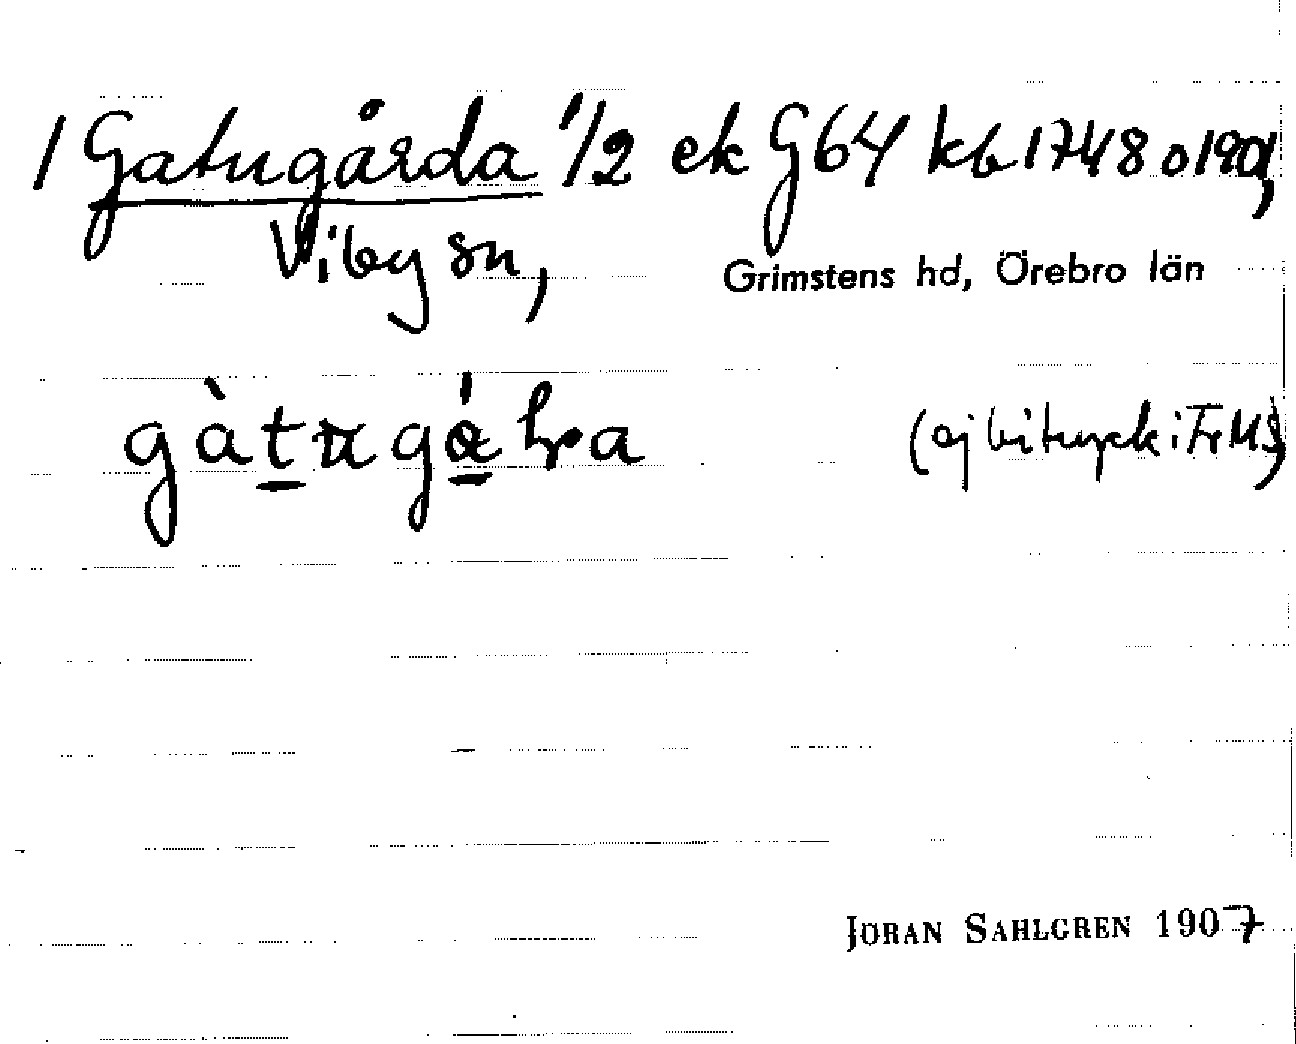 1 Gatugårda 1/2 ek G64 kb 1748 o 1901,
Viby sn,
Grimstens hd, Örebro län
(ej bitryck i Fr MS)
JÖRAN SAHLGREN 1907